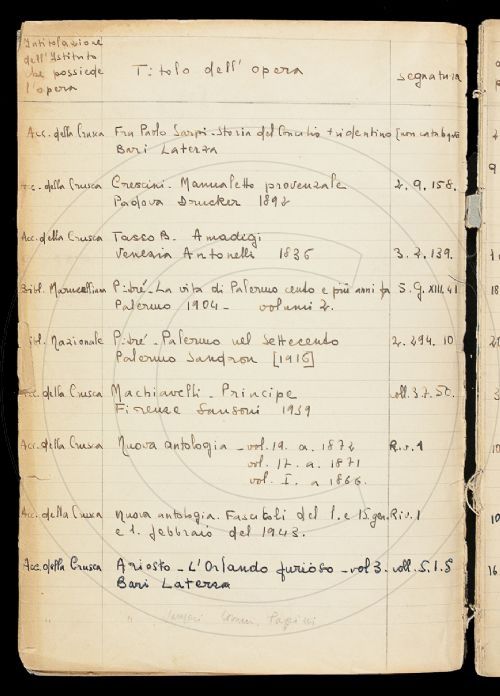 Intitolazione
dell'Istituto
che possiede
l'opera
Titolo dell'opera
segnatura
Acc. della Crusca Fra Paolo Sarpi - Storia del Concilio tridentino [non catalogato
Bari Laterza
Acc. della Crusca Crescini. Manualetto provenzale 2. 9. 158.
Padova Drucker 1892
Acc. della Crusca Tasso B. Amadigi
Venezia Antonelli 1836 3. 2. 139.
Bibl. Marucelliana Pitré - La vita di Palermo cento e più anni fa S. G. XIII. 41
Palermo 1904 - volumi 2.
Bibl. Nazionale Pitré - Palermo nel Settecento 2. 294. 10
Palermo Sandron [1916]
Acc. della Crusca Machiavelli - Principe coll. 37. 50.
Firenze Sansoni 1939
Acc. della Crusca Nuova antologia - vol. 19. a. 1872 R. v. 1
vol. 17. a. 1871
vol. I. a 1866.
Acc. della Crusca Nuova antologia. Fascicoli del 1. e 15 gen. Riv. 1
e 1. febbraio del 1943.
Acc. della Crusca Ariosto - L'Orlando furioso - vol 3. coll. S. I. S
Bari Laterza